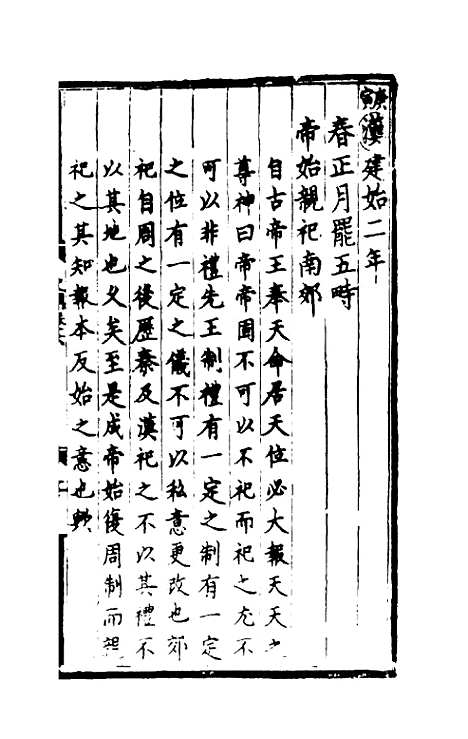 庚寅漢建始二年
春正月罷五畤
帝始親祀南郊
自古帝王奉天命居天位必大報天天之
尊神曰帝帝固不可以不祀而祀之尤不
可以非禮先王制禮有一定之制有一定
之位有一定之儀不可以私意更改也郊
祀自周之後歷秦及漢祀之不以其禮不
以其地也久矣至是成帝始復周制而親
祀之其知報本反始之意也歟